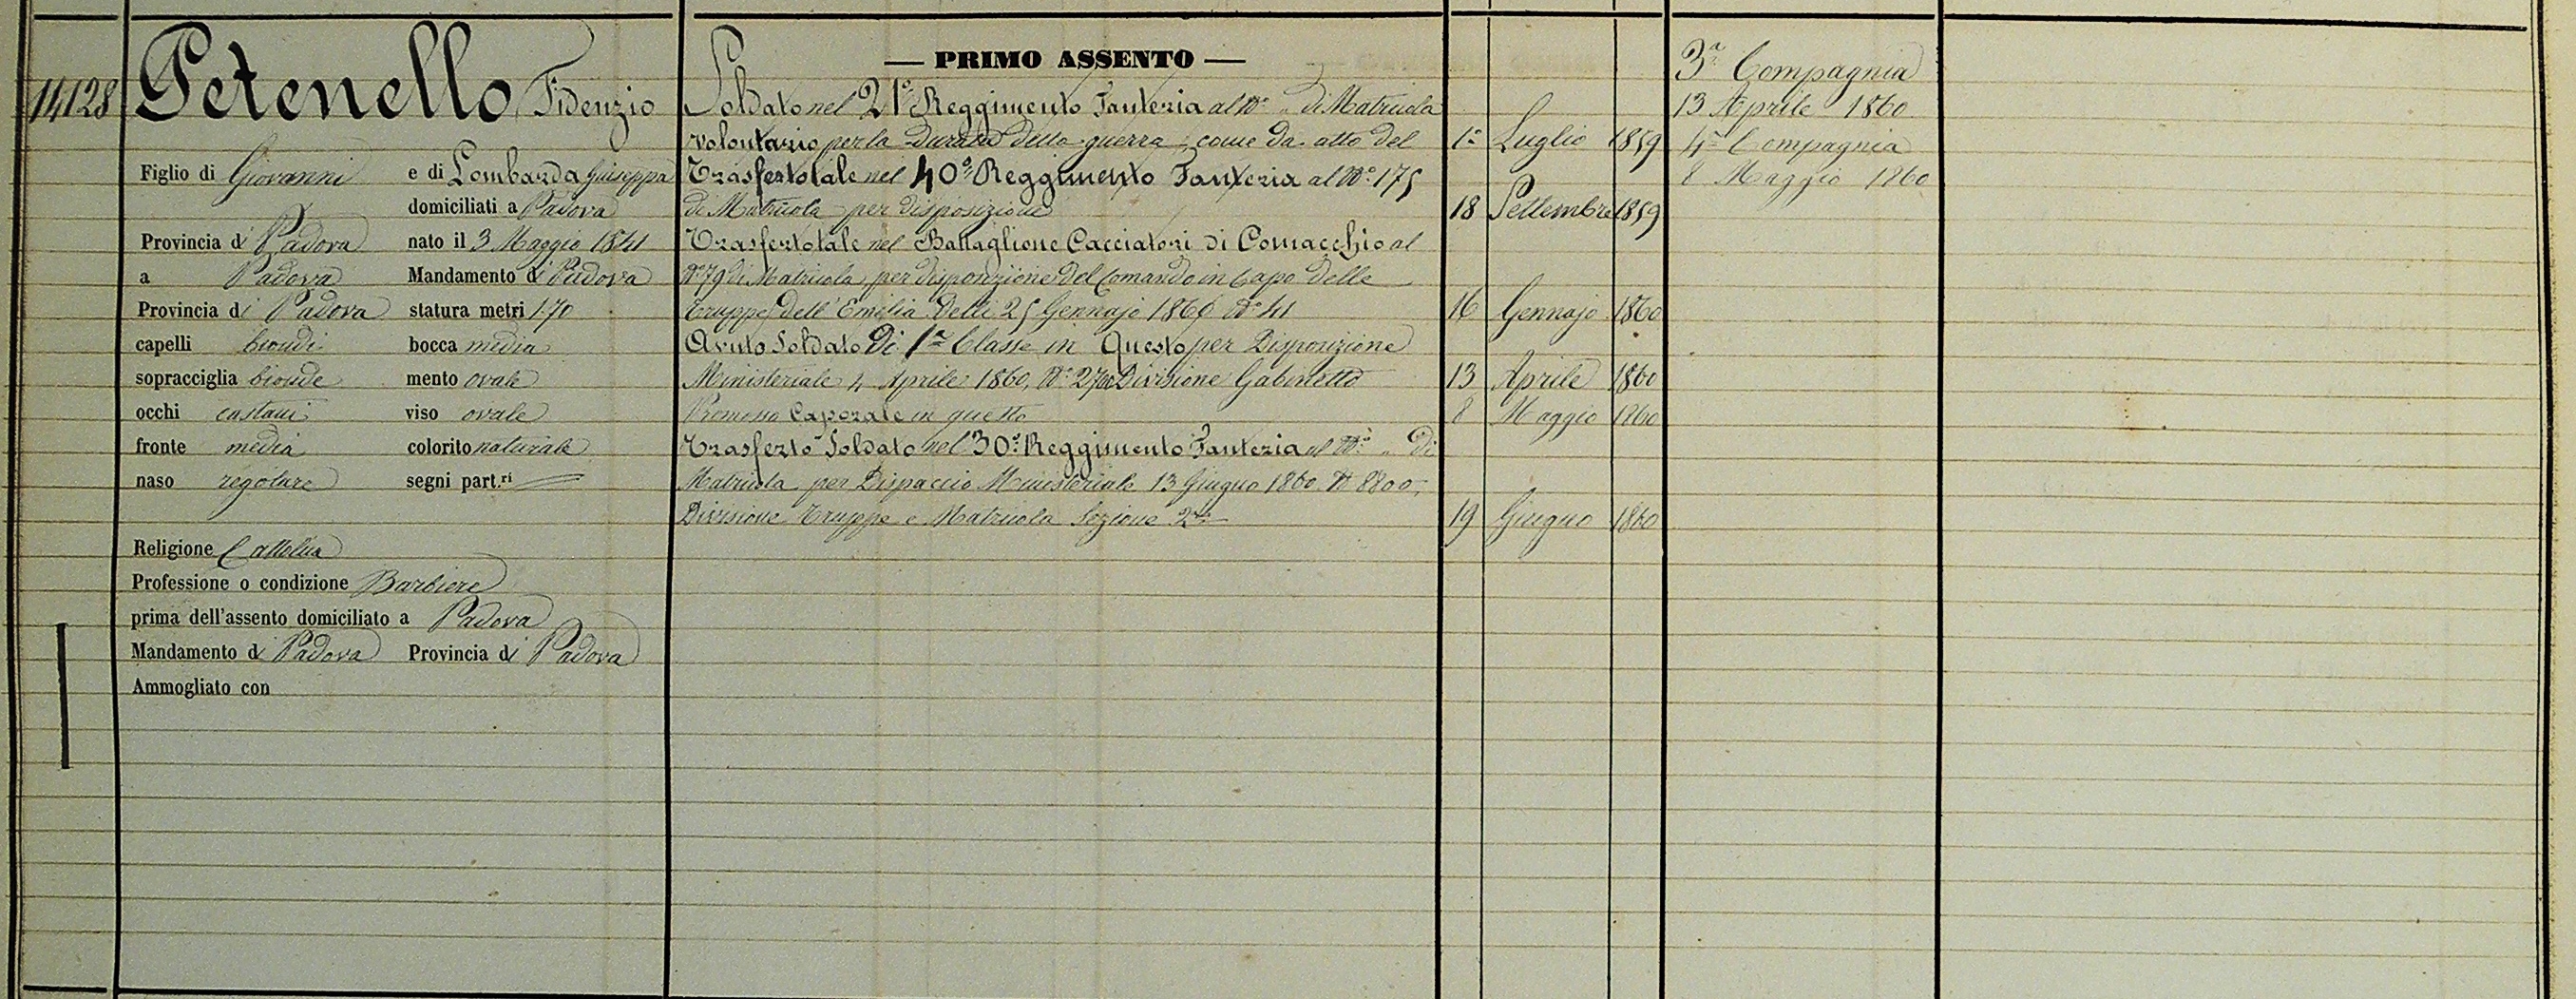 14128
Petenello, Fidenzio
Figlio di Giovanni e di Lombarda Giuseppa
domiciliati a Padova
Provincia di Padova nato il 3 Maggio 1841
a Padova Mandamento di Padova
Provincia di Padova statura metri 1.70
capelli biondi bocca media
sopracciglia bionde mento ovale
occhi castani viso ovale
fronte media colorito naturale
naso regolare segni part.ri
Religione Cattolica
Professione o condizione Barbiere
prima dell'assento domiciliato a Padova
Mandamento di Padova Provincia di Padova
Ammogliato con
— PRIMO ASSENTO —
Soldato nel 21º Reggimento Fanteria al Nº „ di Matricola
volontario per la durata della guerra, come da atto del 1º Luglio 1859
Trasferto tale nel 40º Reggimento Fanteria al Nº 175
di Matricola per disposizione 18 Settembre 1859
Trasferto tale nel Battaglione Cacciatori di Comacchio al
Nº 79 di Matricola, per disposizione del Comando in Capo delle
truppe dell'Emilia delli 25 Gennajo 1860 Nº 41 16 Gennajo 1860
Avuto Soldato di 1ª Classe in Questo per Disposizione
Ministeriale 4 Aprile 1860, Nº Divisione Gabinetto 13 Aprile 1860
Promosso Caporale in questo 8 Maggio 1860
Trasferto Soldato nel 30º Reggimento Fanteria al Nº „ di
Matricola, per Dispaccio Ministeriale 13 Giugno 1860 Nº 8800,
Divisione Truppe e Matricola Sezione 2ª 19 Giugno 1860
3ª Compagnia
13 Aprile 1860
4ª Compagnia
8 Maggio 1860